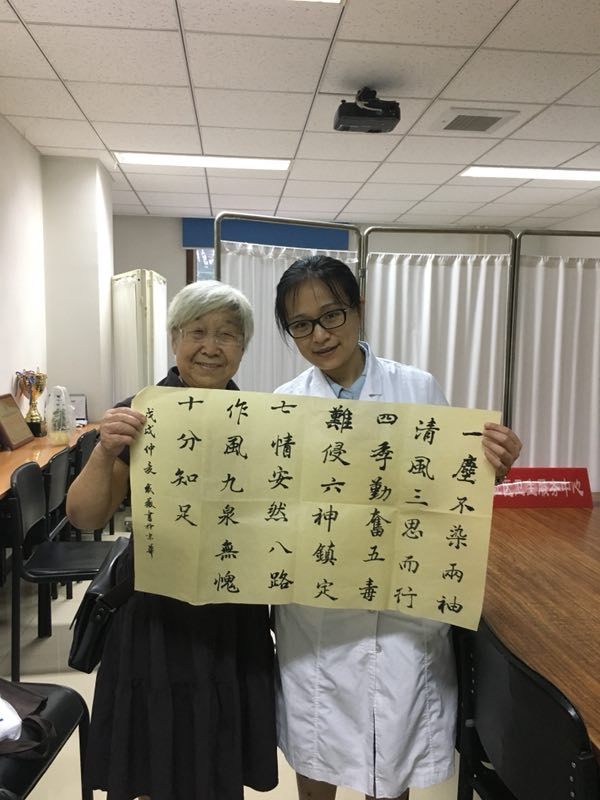 一塵不染兩袖
清風三思而行
四季勤奮五毒
難侵六神鎮定
七情安然八路
作風九泉無愧
十分知足
戊戌仲夏 書於京華
区卫生服务中心